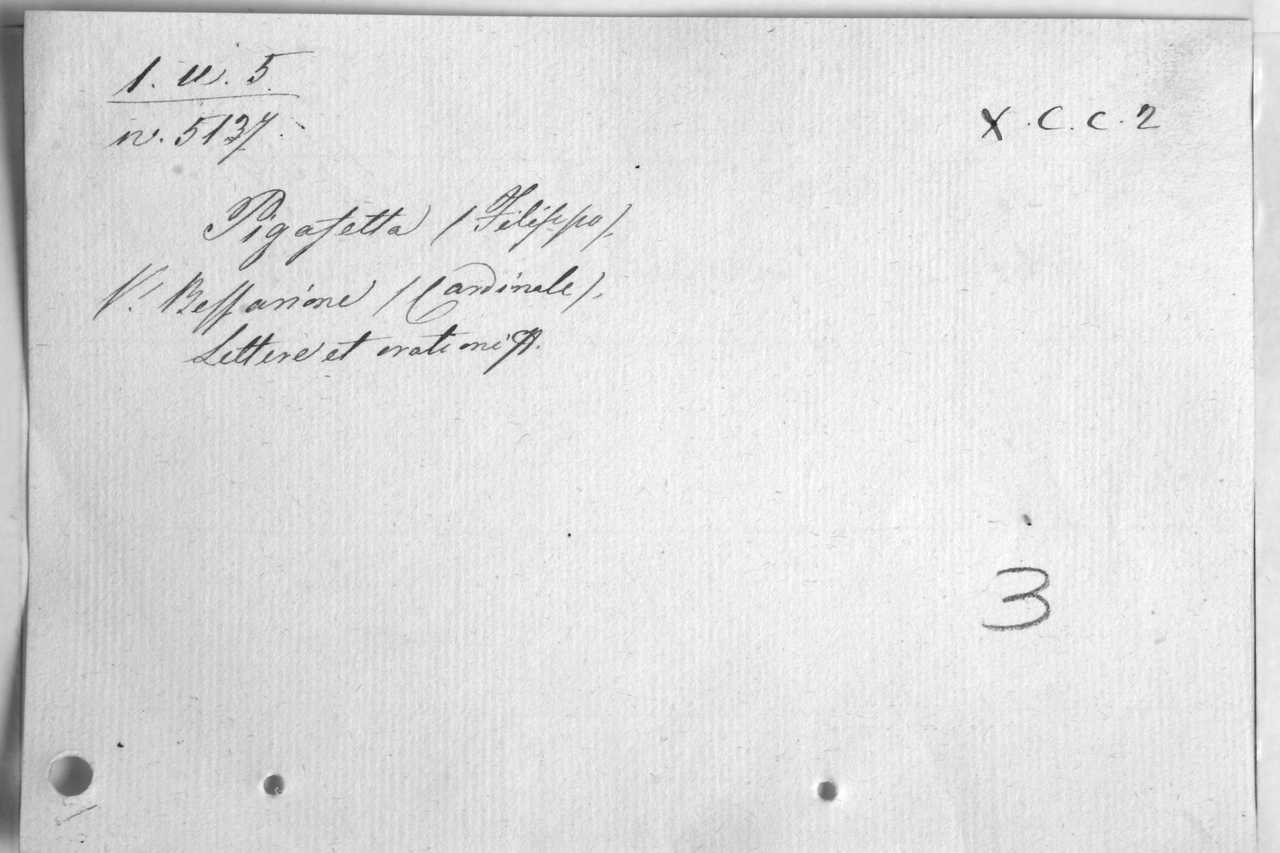 1. u. 5.
n. 5137.
X. C. C. 2
Pigafetta (Filippo).
V. Bessarione (Cardinale).
Lettere et orationi
3